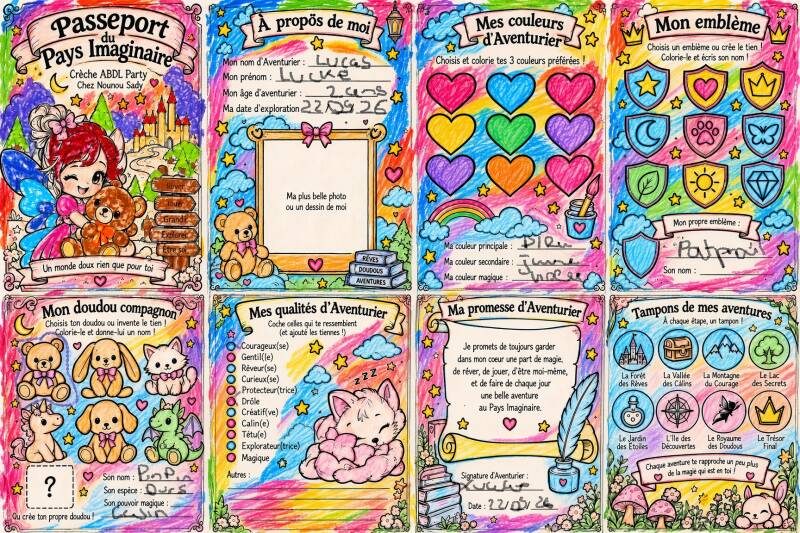 Passeport
du
Pays Imaginaire
Crèche ABDL Party
Chez Nounou Sady
Rêver
Jouer
Grandir
Explorer
Être soi
Un monde doux rien que pour toi
À propös de moi
Mon nom d'Aventurier : Lucas
Mon prénom :
Mon âge d'aventurier : 2 ans
Ma date d'exploration 22/05/26
Ma plus belle photo
ou un dessin de moi
RÊVES
DOUDOUS
AVENTURES
Mes couleurs
d'Aventurier
Choisis et colorie tes 3 couleurs préférées !
Ma couleur principale : Bleu
Ma couleur secondaire : jaune
Ma couleur magique :
Mon emblème
Choisis un emblème ou crée le tien !
Colorie-le et écris son nom !
Mon propre emblème :
Son nom :
Mon doudou compagnon
Choisis ton doudou ou invente le tien !
Colorie-le et donne-lui un nom !
?
Son nom :
Son espèce : Ours
Son pouvoir magique :
Calin
Qu crée ton propre doudou !
Mes qualités d'Aventurier
Coche celles qui te ressemblent
(et ajouté les tiennes !)
Courageux(se)
Gentil((le)
Rêveur(se)
Curieux(se)
Protecteur(trice)
Drôle
Créatif(ve)
Calin(e)
Têtu(e)
Explorateur(trice)
Magique
Autres :
z z z
Ma promesse d'Aventurier
Je promets de toujours garder
dans mon cœur une part de magie,
de rêver, de jouer, d'être moi-même,
et de faire de chaque jour
une belle aventure
au Pays Imaginaire.
Signature d'Aventurier :
Date : 22/05/26
Tampons de mes aventures
À chaque étape, un tampon !
La Forêt
des Rêves
La Vallée
des Câlins
La Montagne
du Courage
Le Lac
des Secrets
Le Jardin
des Étoiles
L'Ile des
Découvertes
Le Royaume
des Doudous
Le Trésor
Final
Chaque aventure te rapproche un peu plus
de la magie qui est en toi !